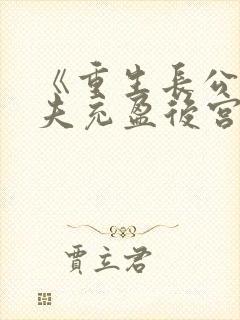 《重生長公
夫充盈後宮
賈立君